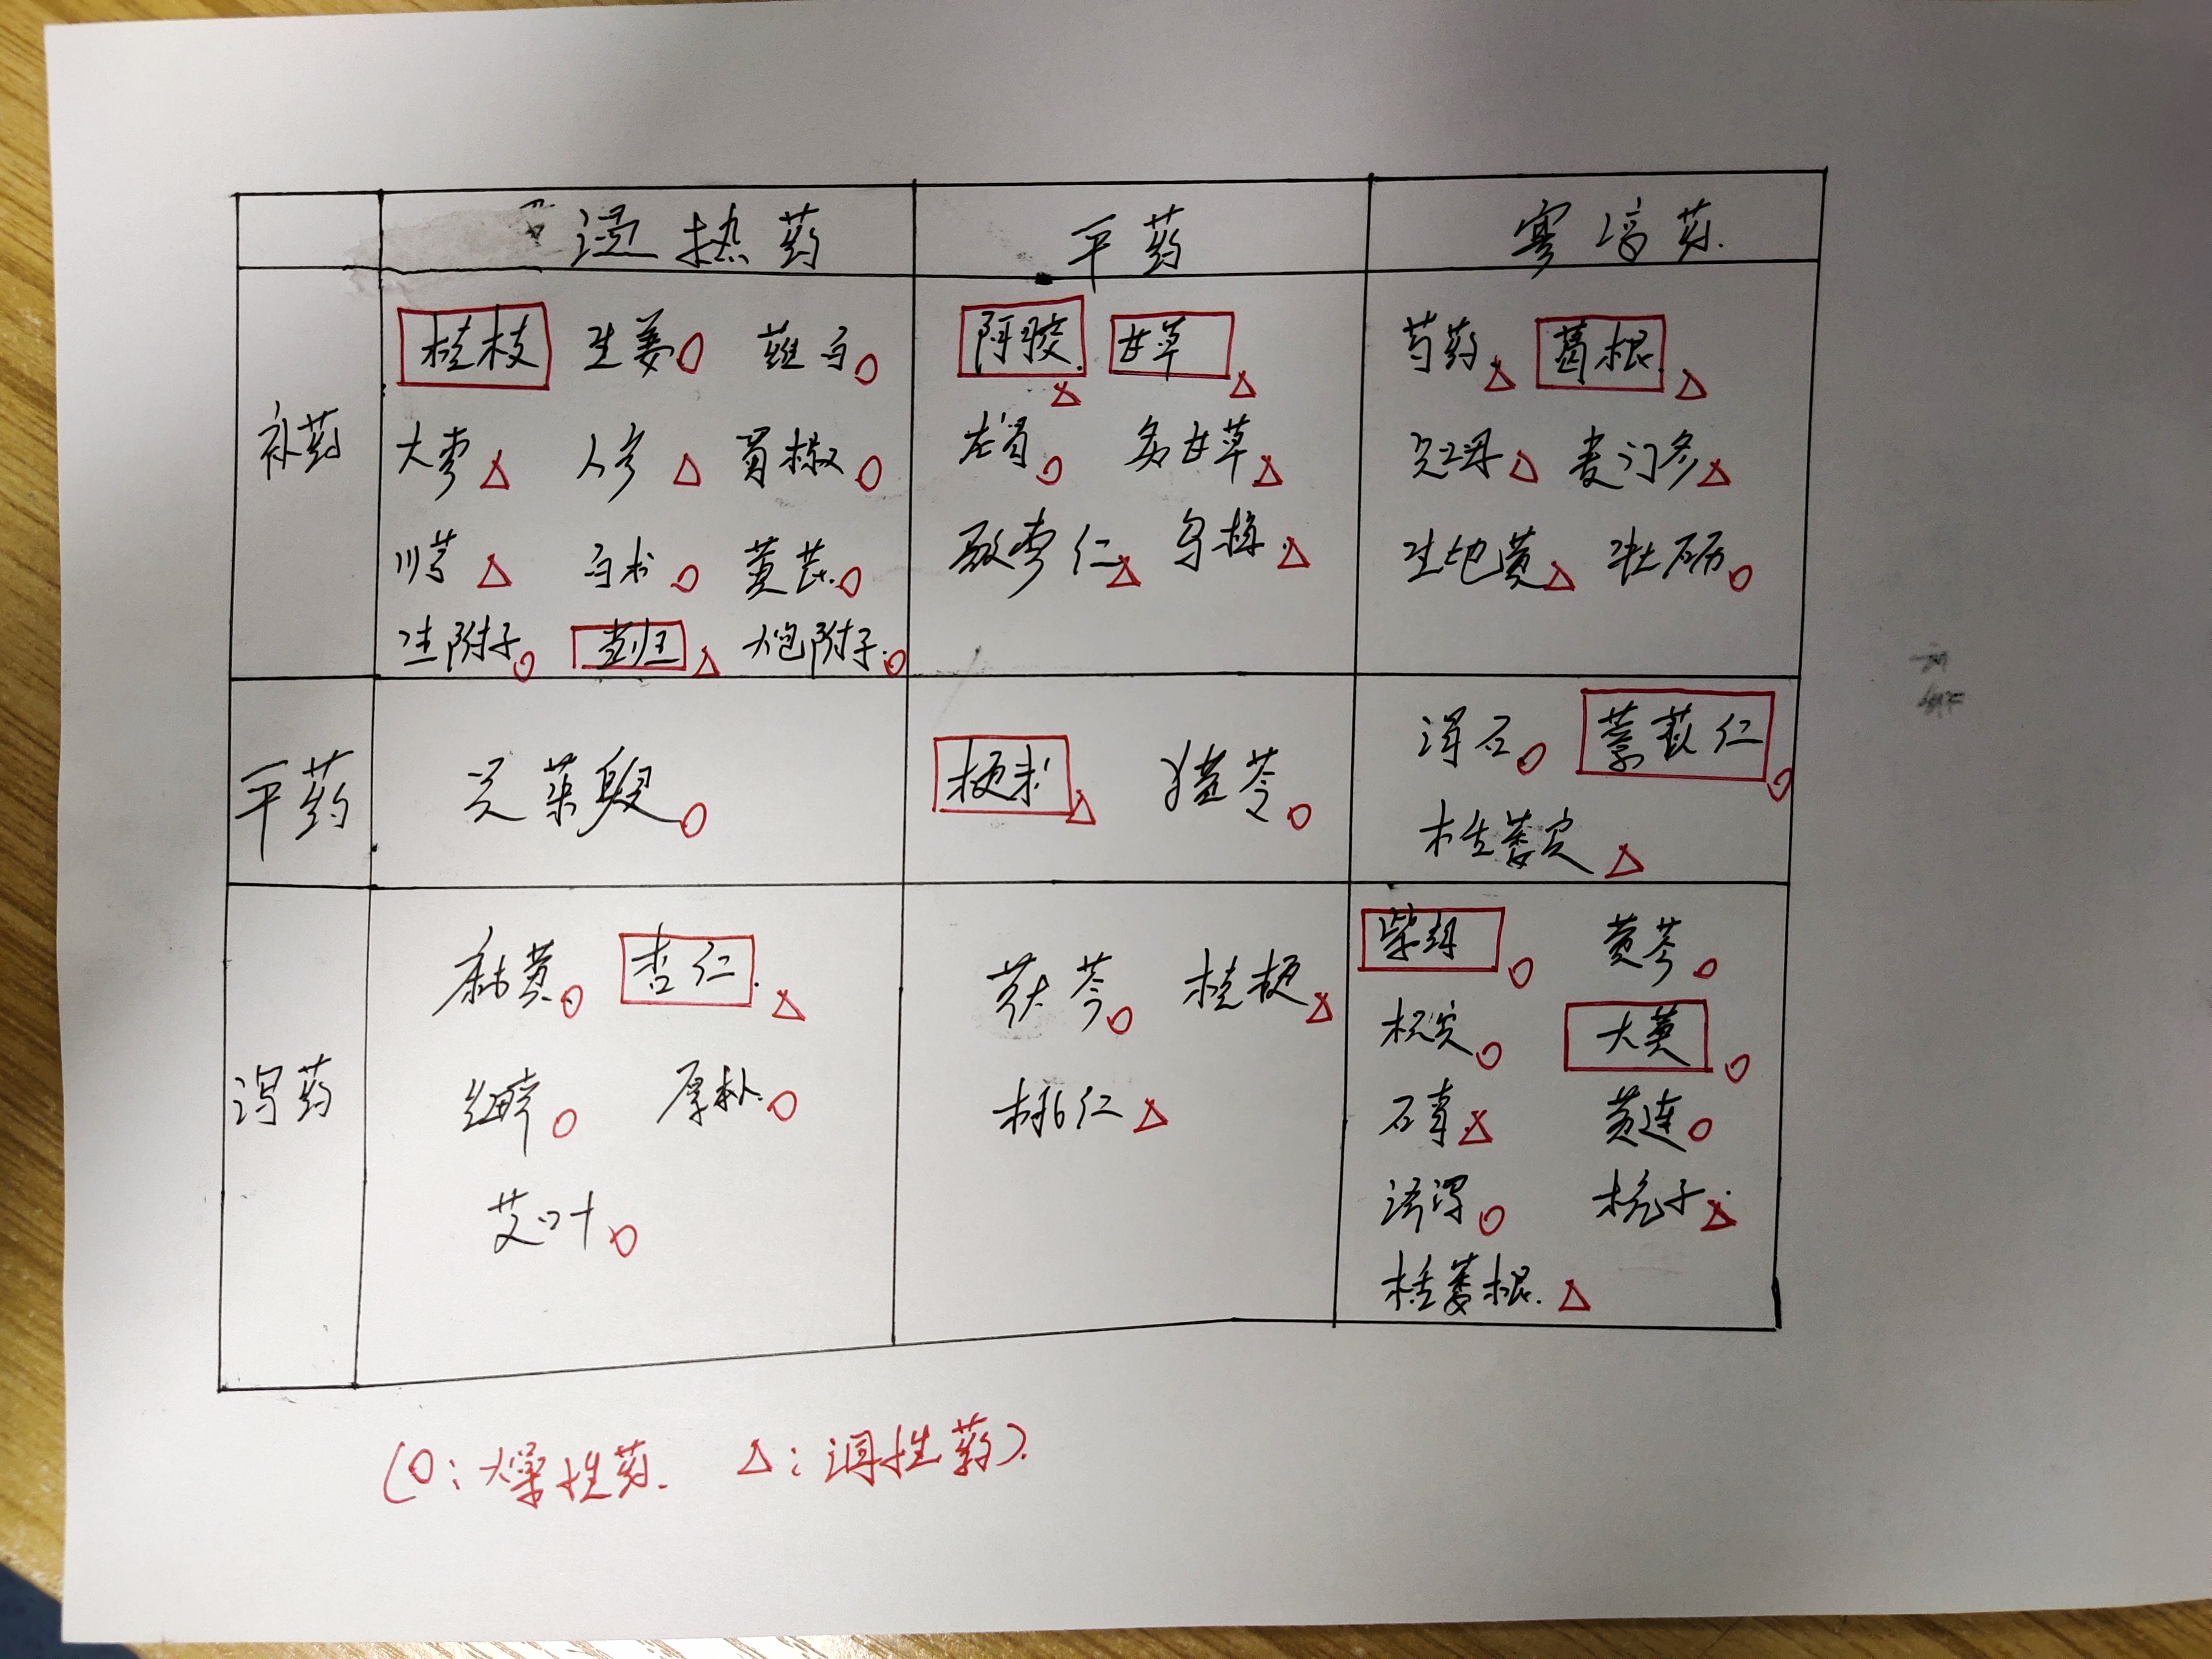 温热药 平药 寒凉药
补药
桂枝 生姜○ 薤白○
大枣△ 人参△ 蜀椒○
川芎△ 白术○ 黄芪○
生附子○ 当归△ 炮附子○
阿胶△ 甘草△
炙甘草△
酸枣仁△ 乌梅△
芍药△ 葛根△
知母△ 麦门冬△
生地黄△ 牡蛎○
平药
吴茱萸○
粳米△ 猪苓○
滑石○ 薏苡仁○
栝蒌实△
泻药
麻黄○ 杏仁△
细辛○ 厚朴○
艾叶○
茯苓○ 桔梗△
桃仁△
柴胡○ 黄芩○
枳实○ 大黄○
石膏△ 黄连○
泽泻○ 栀子△
栝蒌根△
(○:燥性药 △:润性药)